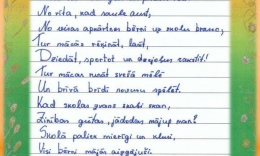 No rīta, kad saule aust,
No visas apkārtnes bērni uz skolu brauc,
Tur mācās rēķināt, lasīt,
Dziedāt, sportot un dejošus
Tur mācas runāt svešā mēlē
Un brīvā brīdī nosumu spēlēt.
Kad skolas zvans skaļi skan,
Zinības gūtas, jādodas mājup man!
Skolā paliek mierīgi un klusi,
Visi bērni mājās aizgājuši.